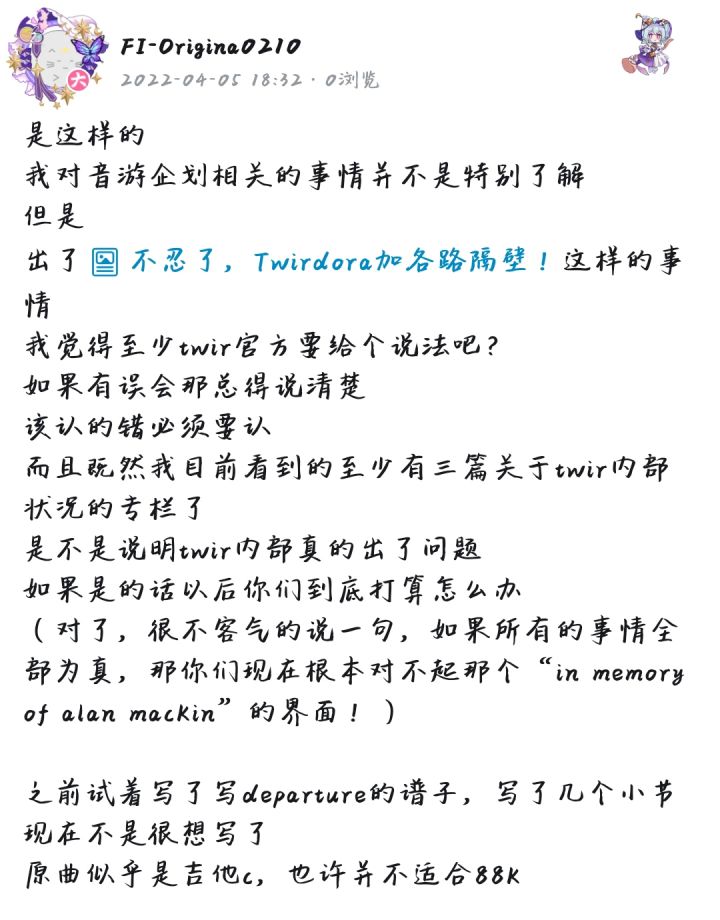 FI-Origina0210
2022-04-05 18:32 · 0浏览
大
是这样的
我对音游企划相关的事情并不是特别了解
但是
出了 不忍了，Twirdora加各路隔壁！这样的事
情
我觉得至少twir官方要给个说法吧？
如果有误会那总得说清楚
该认的错必须要认
而且既然我目前看到的至少有三篇关于twir内部
状况的专栏了
是不是说明twir内部真的出了问题
如果是的话以后你们到底打算怎么办
（对了，很不客气的说一句，如果所有的事情全
部为真，那你们现在根本对不起那个“in memory
of alan mackin”的界面！）
之前试着写了写departure的谱子，写了几个小节
现在不是很想写了
原曲似乎是吉他c，也许并不适合88K